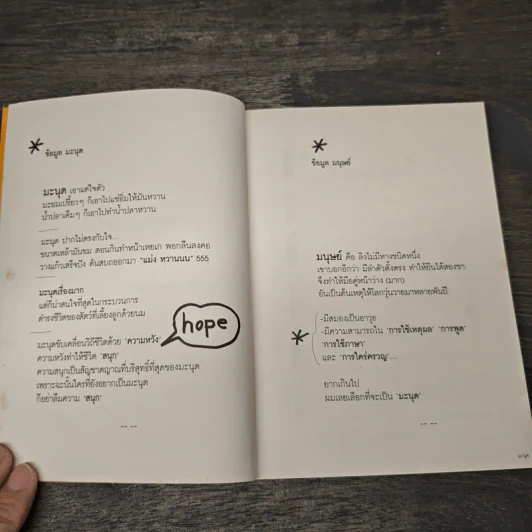 * ข้อมูล มะนุด
มะนุด เอาแต่ใจตัว
มะยมเปรี้ยวๆ ก็เอาไปแช่อิ่มให้มันหวาน
น้ำปลาเค็มๆ ก็เอาไปทำน้ำปลาหวาน
มะนุด ปากไม่ตรงกับใจ...
ขนาดเหล้ามันขม ตอนกินทำหน้าเหยเก พอกลืนลงคอ
วางแก้วเสร็จปัง ดันสบถออกมา "แม่ง หวานนน" 555
มะนุดเรื่องมาก
แต่ก็น่าสนใจที่สุดในกระบวนการ
ดำรงชีวิตของสัตว์ที่เลี้ยงลูกด้วยนม
มะนุดขับเคลื่อนวิถีชีวิตด้วย 'ความหวัง'
hope
ความหวังทำให้ชีวิต 'สนุก'
ความสนุกเป็นสัญชาตญาณที่บริสุทธิ์ที่สุดของมะนุด
เพราะฉะนั้นใครที่ยังอยากเป็นมะนุด
ก็อย่าลืมความ 'สนุก'
-- --
*
ข้อมูล มนุษย์
มนุษย์ คือ ลิงไม่มีหางชนิดหนึ่ง
เขาบอกอีกว่า มีลำตัวตั้งตรง ทำให้ยืนได้สองขา
จึงทำให้มือคู่หน้าว่าง (มาก)
อันเป็นต้นเหตุให้โลกวุ่นวายมาหลายพันปี
-มีสมองเป็นอาวุธ
* -มีความสามารถใน 'การใช้เหตุผล' 'การพูด'
'การใช้ภาษา'
และ 'การใคร่ครวญ'...
ยากเกินไป
ผมเลยเลือกที่จะเป็น 'มะนุด'
-- --
มะนุด